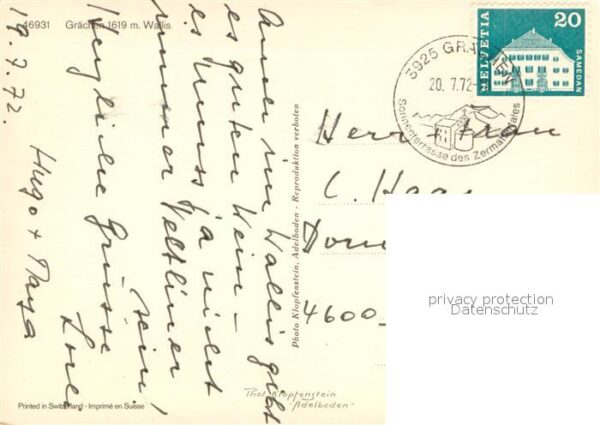 46931 Grächen 1619 m. Wallis
19.7.72.
Auch im Wallis gibt
es guten Wein –
es muss ja nicht
immer Veltliner
sein!
Herzliche Grüsse
Hugo + Maya
Printed in Switzerland - Imprimé en Suisse
Photo Klopfenstein, Adelboden - Reproduktion verboten
Phot. Klopfenstein
- Adelboden -
HELVETIA
20
SAMEDAN
3925 GRÄCHEN
20.7.72-
Sonnenterrasse des Zermattertales
Herr + Frau
C. Haas
4600
privacy protection
Datenschutz